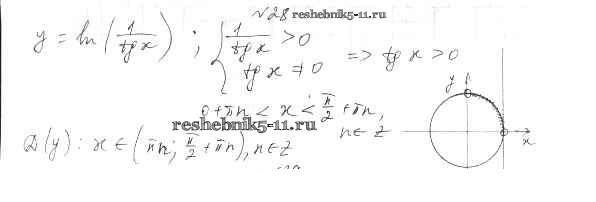 №28 reshebnik5-11.ru
y = ln(1/tg x) ; { 1/tg x > 0
tg x ≠ 0 => tg x > 0
0 + πn < x < π/2 + πn,
n ∈ Z
reshebnik5-11.ru
D(y): x ∈ (πn; π/2 + πn), n ∈ Z
y
x